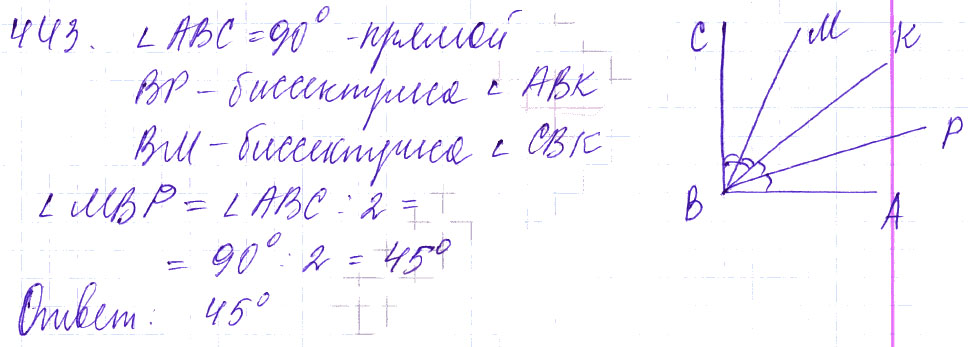 443. ∟ABC = 90° - прямой
BP - биссектриса ∟ ABK
BM - биссектриса ∟ CBK
∟MBP = ∟ABC : 2 =
= 90° : 2 = 45°
Ответ: 45°
C M K
P
B A